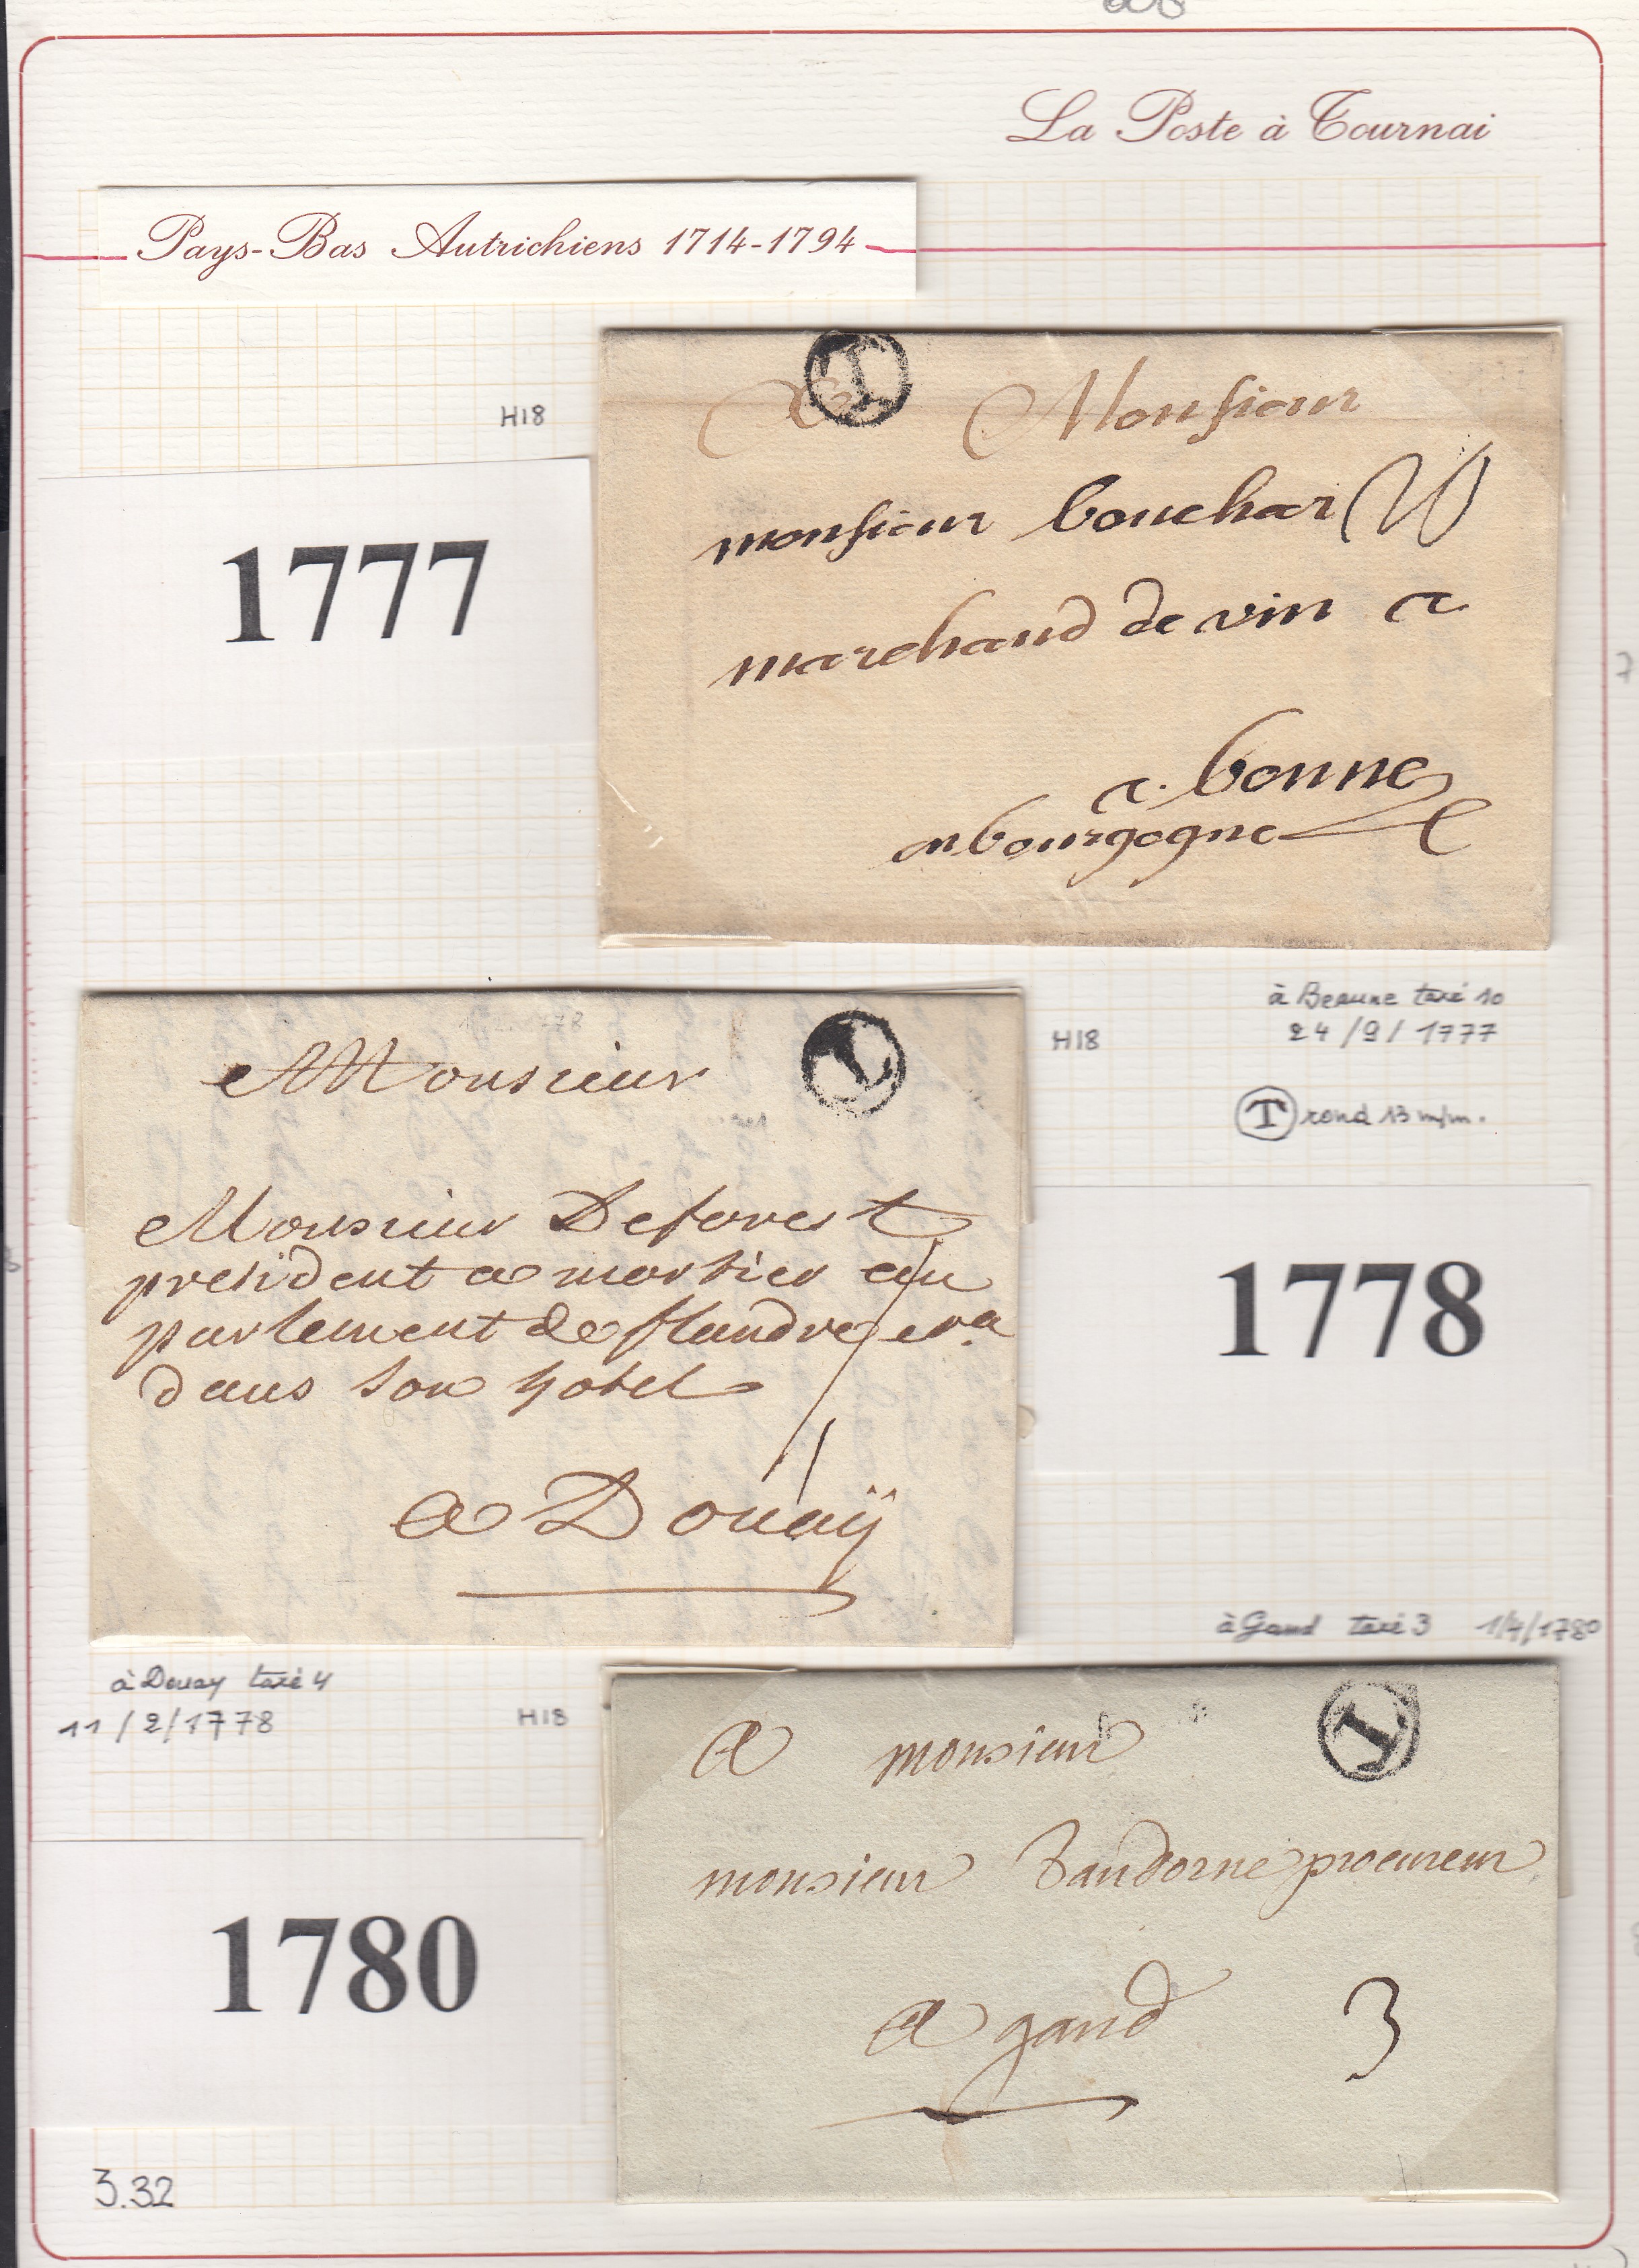 La Poste à Tournai
Pays-Bas Autrichiens 1714-1794
H18
1777
T
A Monsieur
monsieur bouchar
marchand de vin a
a. bonne
en bourgogne
à Beaune taxé 10
24/9/1777
T rond 13 m/m.
H18
1778
T
Monsieur
Monsieur Deforest
president a mortier au
parlement de flandre
dans son hotel
a Douaÿ
à Douay taxé 4
11/2/1778
H18
1780
à Gand taxé 3 1/4/1780
T
A monsieur
monsieur Vandorne procureur
A gand
3
3.32